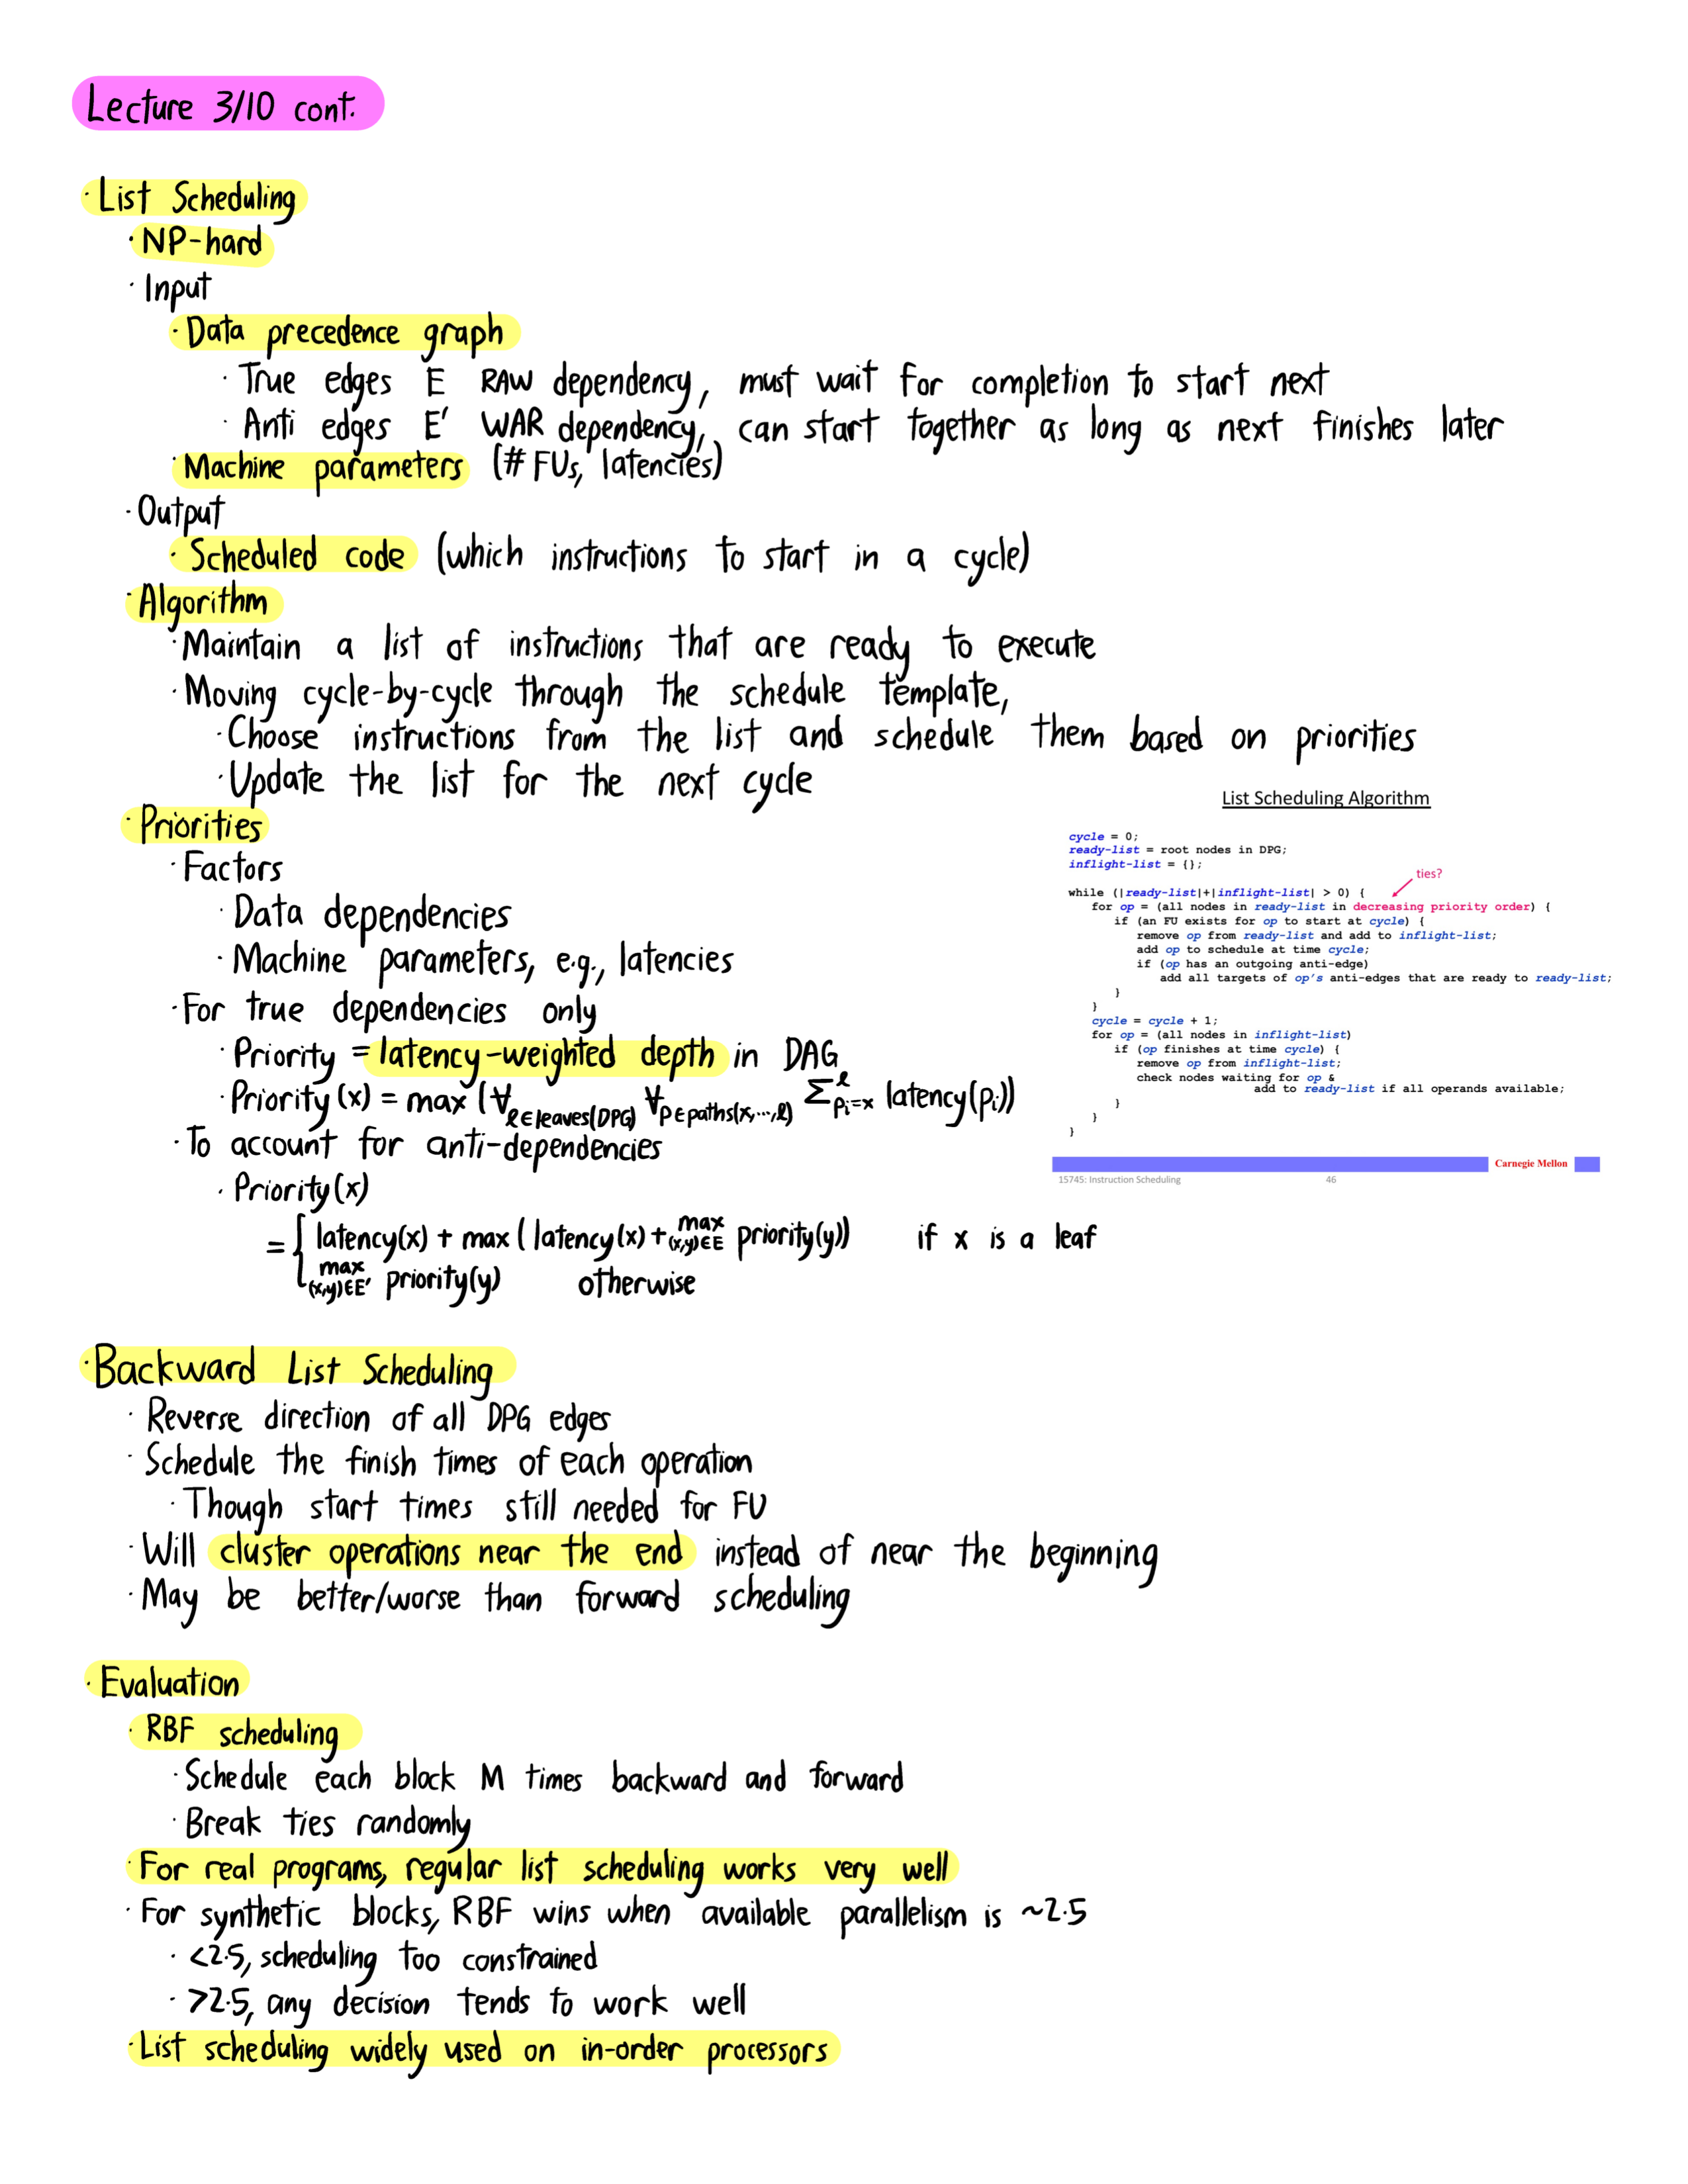 Lecture 3/10 cont.
· List Scheduling
· NP-hard
· Input
· Data precedence graph
· True edges E RAW dependency, must wait for completion to start next
· Anti edges E' WAR dependency, can start together as long as next finishes later
· Machine parameters (# FUs, latencies)
· Output
· Scheduled code (which instructions to start in a cycle)
· Algorithm
· Maintain a list of instructions that are ready to execute
· Moving cycle-by-cycle through the schedule template,
· Choose instructions from the list and schedule them based on priorities
· Update the list for the next cycle
· Priorities
· Factors
· Data dependencies
· Machine parameters, e.g., latencies
· For true dependencies only
· Priority = latency-weighted depth in DAG
· Priority (x) = max (∀ℓ∈leaves(DPG) ∀p∈paths(x,...,ℓ) Σ^ℓ_pᵢ=x latency(pᵢ))
· To account for anti-dependencies
· Priority(x)
= { latency(x) + max ( latency(x) + max (x,y)∈E priority(y)) if x is a leaf
max (x,y)∈E' priority(y) otherwise
List Scheduling Algorithm
cycle = 0;
ready-list = root nodes in DPG;
inflight-list = {};
ties?
while (|ready-list|+|inflight-list| > 0) {
for op = (all nodes in ready-list in decreasing priority order) {
if (an FU exists for op to start at cycle) {
remove op from ready-list and add to inflight-list;
add op to schedule at time cycle;
if (op has an outgoing anti-edge)
add all targets of op's anti-edges that are ready to ready-list;
}
}
cycle = cycle + 1;
for op = (all nodes in inflight-list)
if (op finishes at time cycle) {
remove op from inflight-list;
check nodes waiting for op &
add to ready-list if all operands available;
}
}
}
Carnegie Mellon
15745: Instruction Scheduling 46
· Backward List Scheduling
· Reverse direction of all DPG edges
· Schedule the finish times of each operation
· Though start times still needed for FU
· Will cluster operations near the end instead of near the beginning
· May be better/worse than forward scheduling
· Evaluation
· RBF scheduling
· Schedule each block M times backward and forward
· Break ties randomly
· For real programs, regular list scheduling works very well
· For synthetic blocks, RBF wins when available parallelism is ~2.5
· <2.5, scheduling too constrained
· >2.5, any decision tends to work well
· List scheduling widely used on in-order processors